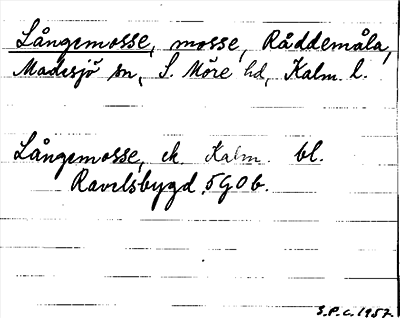 Långemosse, mosse, Råddemåla,
Madesjö sn, S. Möre hd, Kalm. l.
Långemosse, ek. Kalm. bl.
Ravelsbygd 5G0b.
S.P.C. 1957.